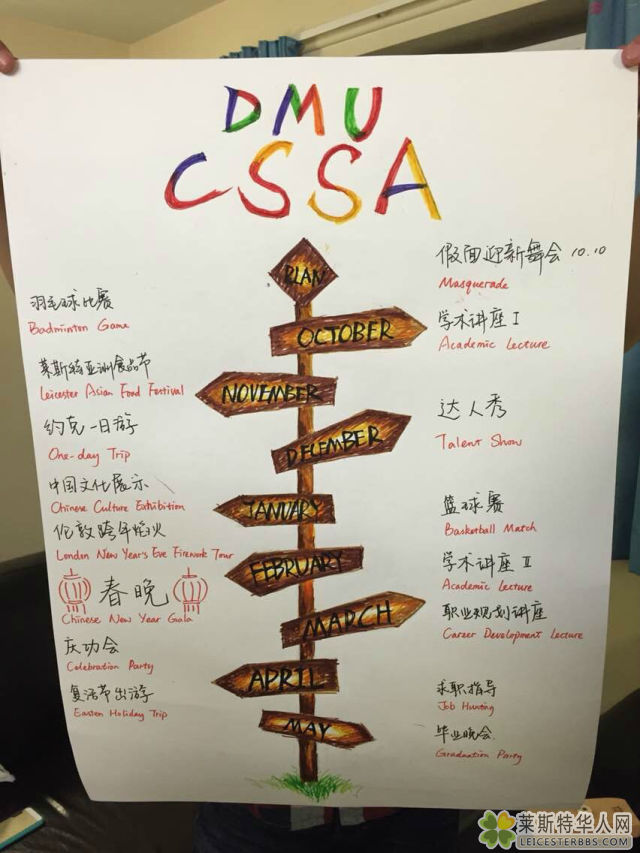 DMU
CSSA
PLAN
OCTOBER
NOVEMBER
DECEMBER
JANUARY
FEBRUARY
MARCH
APRIL
MAY
羽毛球比赛
Badminton Game
莱斯特亚洲食品节
Leicester Asian Food Festival
约克一日游
One-day Trip
中国文化展示
Chinese Culture Exhibition
伦敦跨年焰火
London New Year's Eve Firework Tour
春晚
Chinese New Year Gala
庆功会
Celebration Party
复活节出游
Easten Holiday Trip
假面迎新舞会 10.10
Masquerade
学术讲座 I
Academic Lecture
达人秀
Talent Show
篮球赛
Basketball Match
学术讲座 II
Academic Lecture
职业规划讲座
Career Development Lecture
求职指导
Job Hunting
毕业晚会
Graduation Party
莱斯特华人网
LEICESTERBBS.COM